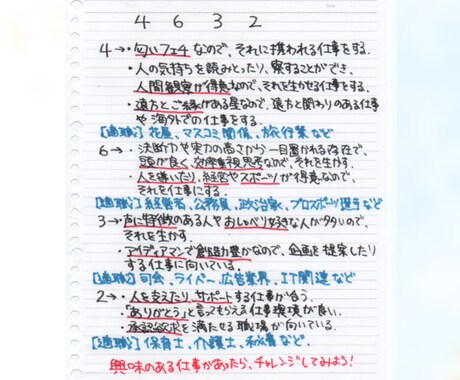 4 6 3 2
4→・匂いフェチなので、それに携われる仕事をする.
・人の気持ちを読みとったり、察することができ、
人間観察が得意なので、それを生かせる仕事をする。
・遠方とご縁がある星なので、遠方と関わりのある仕事
や海外での仕事をする.
【適職】花屋、マスコミ関係、旅行業など
6→・決断力や実力の高さから一目置かれる存在で、
頭が良く、効率重視思考なので、それを生かす。
・人を導いたり、経営やスポーツが得意なので、
それを仕事にする。
【適職】経営者、公務員、政治家、プロスポーツ選手など
3→・声に特徴のある人やおしゃべり好きな人が多いので、
それを生かす。
・アイディアマンで創造力豊かなので、企画を提案したり
する仕事に向いている。
【適職】司会、ライバー、広告業界、IT関連など
2→・人を支えたり、サポートする仕事が合う.
・「ありがとう」と言ってもらえる仕事環境が良い.
・承認欲求を満たせる職場が向いている.
【適職】保育士、介護士、秘書など
興味のある仕事があったら、チャレンジしてみよう!